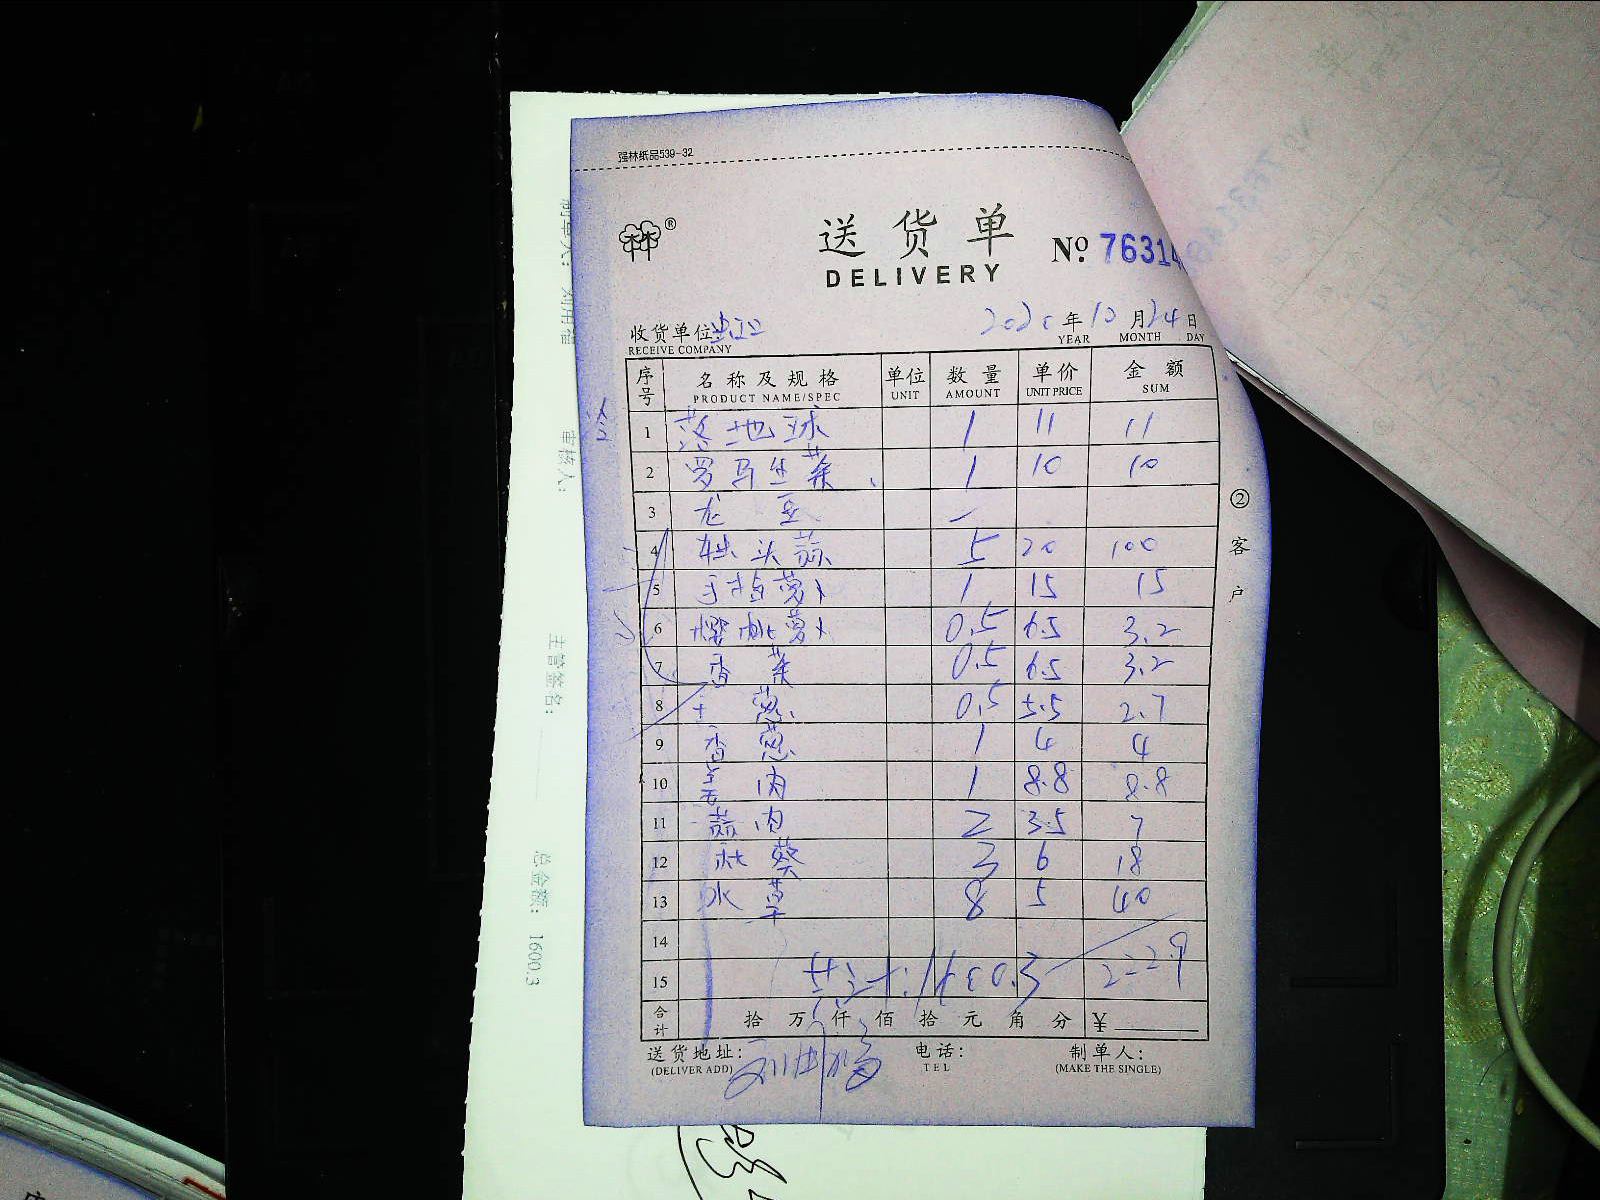 强林纸品539-32
林林®
送货单
DELIVERY
№ 7631
收货单位:
RECEIVE COMPANY
2020年10月24日
YEAR MONTH DAY
序号 名称及规格 单位 数量 单价 金额
PRODUCT NAME/SPEC UNIT AMOUNT UNIT PRICE SUM
1 落地球 1 11 11
2 罗马生菜 1 10 10
3 龙豆
4 独头蒜 5 20 100
5 手指萝卜 1 15 15
6 樱桃萝卜 0.5 6.5 3.2
7 香菜 0.5 6.5 3.2
8 十葱 0.5 5.5 2.7
9 香葱 1 4 4
10 姜肉 1 8.8 8.8
11 蒜肉 2 3.5 7
12 秋葵 3 6 18
13 水草 8 5 40
14
15 共计: 222.9
合计 拾万仟佰拾元角分 ¥
送货地址: 电话: 制单人:
(DELIVER ADD) TEL (MAKE THE SINGLE)
②客户
审核人:
主管签名:
总金额: 1600.3